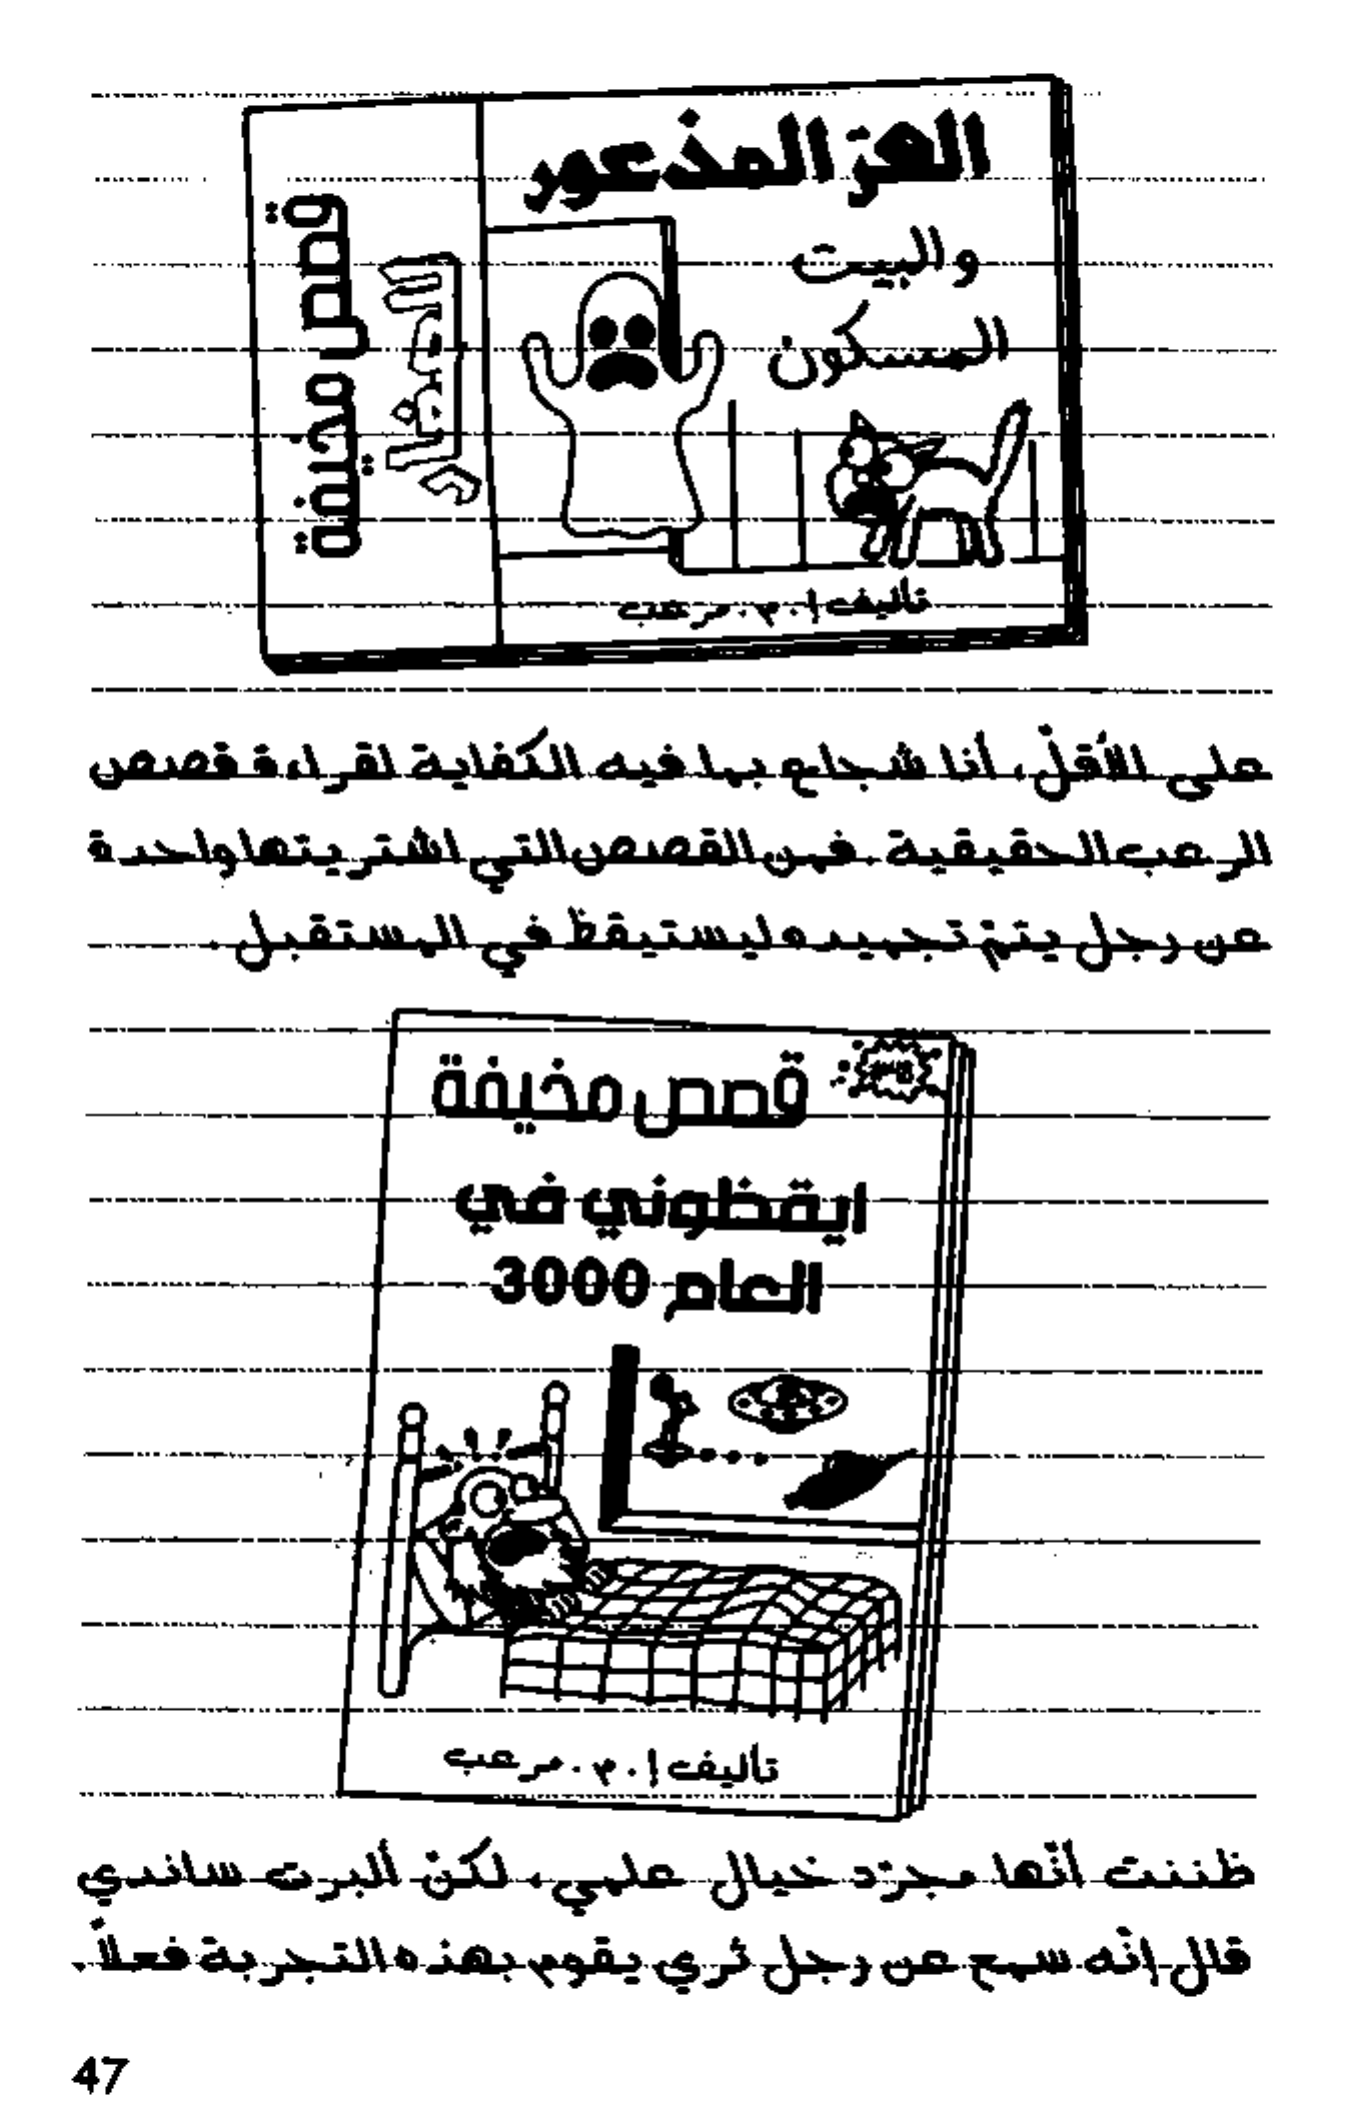 الهرّ المذعور
والبيت
المسكون
قصص مخيفة
للصغار
تأليف إ. م. مرعب
على الأقلّ، أنا شجاع بما فيه الكفاية لقراءة قصص
الرعب الحقيقية. فمن القصص التي اشتريتها واحدة
عن رجل يتمّ تجميده ليستيقظ في المستقبل.
قصص مخيفة
ايقظوني في
العام 3000
تأليف إ. م. مرعب
ظننت أنّها مجرّد خيال علمي، لكنّ ألبرت ساندي
قال إنّه سمع عن رجل ثري يقوم بهذه التجربة فعلاً.
47